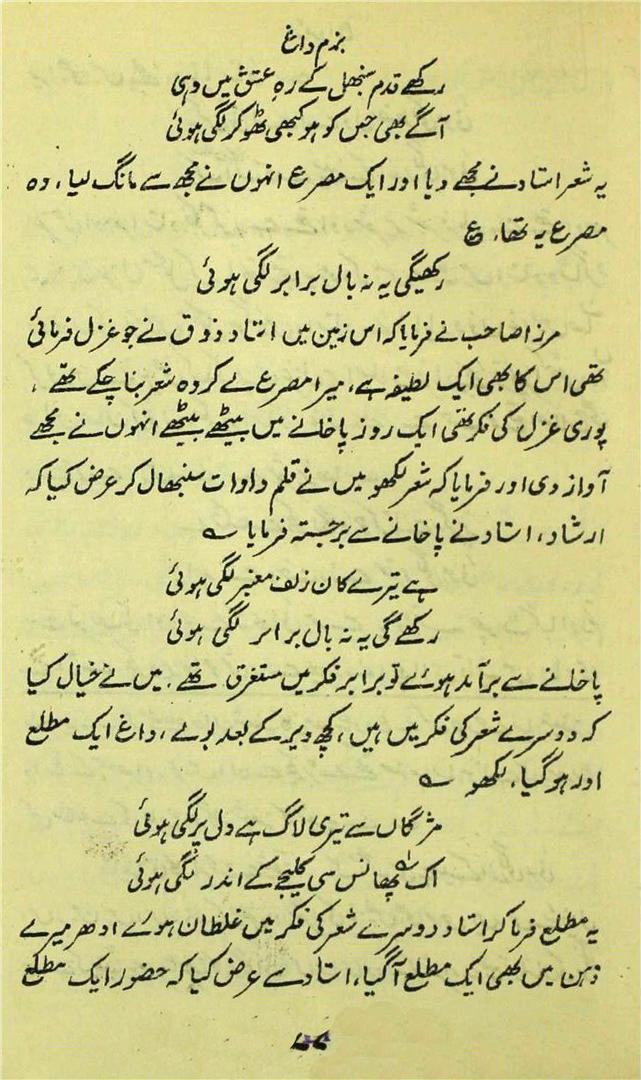 بزم داغ
رکھے قدم سنبھل کے رہِ عشق میں وہی
آگے بھی جس کو ہو کبھی ٹھوکر لگی ہوئی
یہ شعر استاد نے مجھے دیا اور ایک مصرع انہوں نے مجھ سے مانگ لیا، وہ
مصرع یہ تھا، ع
رکھیگی یہ نہ بال برابر لگی ہوئی
مرزا صاحب نے فرمایا کہ اس زمین میں استاد ذوق نے جو غزل فرمائی
تھی اس کا بھی ایک لطیفہ ہے، میرا مصرع لے کر وہ شعر بنا چکے تھے،
پوری غزل کی فکر تھی ایک روز پاخانے میں بیٹھے بیٹھے انہوں نے مجھے
آواز دی اور فرمایا کہ شعر لکھو میں نے قلم داوات سنبھال کر عرض کیا کہ
ارشاد، استاد نے پاخانے سے برجستہ فرمایا ؎
ہے تیرے کان زلف معنبر لگی ہوئی
رکھے گی یہ نہ بال برابر لگی ہوئی
پاخانے سے برآمد ہوئے تو برابر فکر میں مستغرق تھے۔ میں نے خیال کیا
کہ دوسرے شعر کی فکر میں ہیں، کچھ دیر کے بعد بولے، داغ ایک مطلع
اور ہو گیا، لکھو ؎
مژگاں سے تیری لاگ ہے دل پر لگی ہوئی
اک پھانس سی کلیجے کے اندر لگی ہوئی
یہ مطلع فرما کر استاد دوسرے شعر کی فکر میں غلطان ہوئے ادھر میرے
ذہن میں بھی ایک مطلع آگیا، استاد سے عرض کیا کہ حضور ایک مطلع